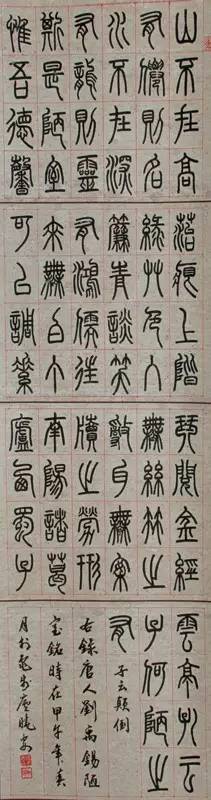 山不在高
有僊則名
水不在深
有龍則靈
斯是陋室
惟吾德馨
苔痕上階
綠艸色入
簾青談笑
有鴻儒往
來無白丁
可以調素
琴閱金經
無絲竹之
亂耳無案
牘之勞形
南陽諸葛
廬西蜀子
雲亭孔云
子何陋之
有
子云顛倒
右錄唐人劉禹錫陋
室銘時在甲午年
月於